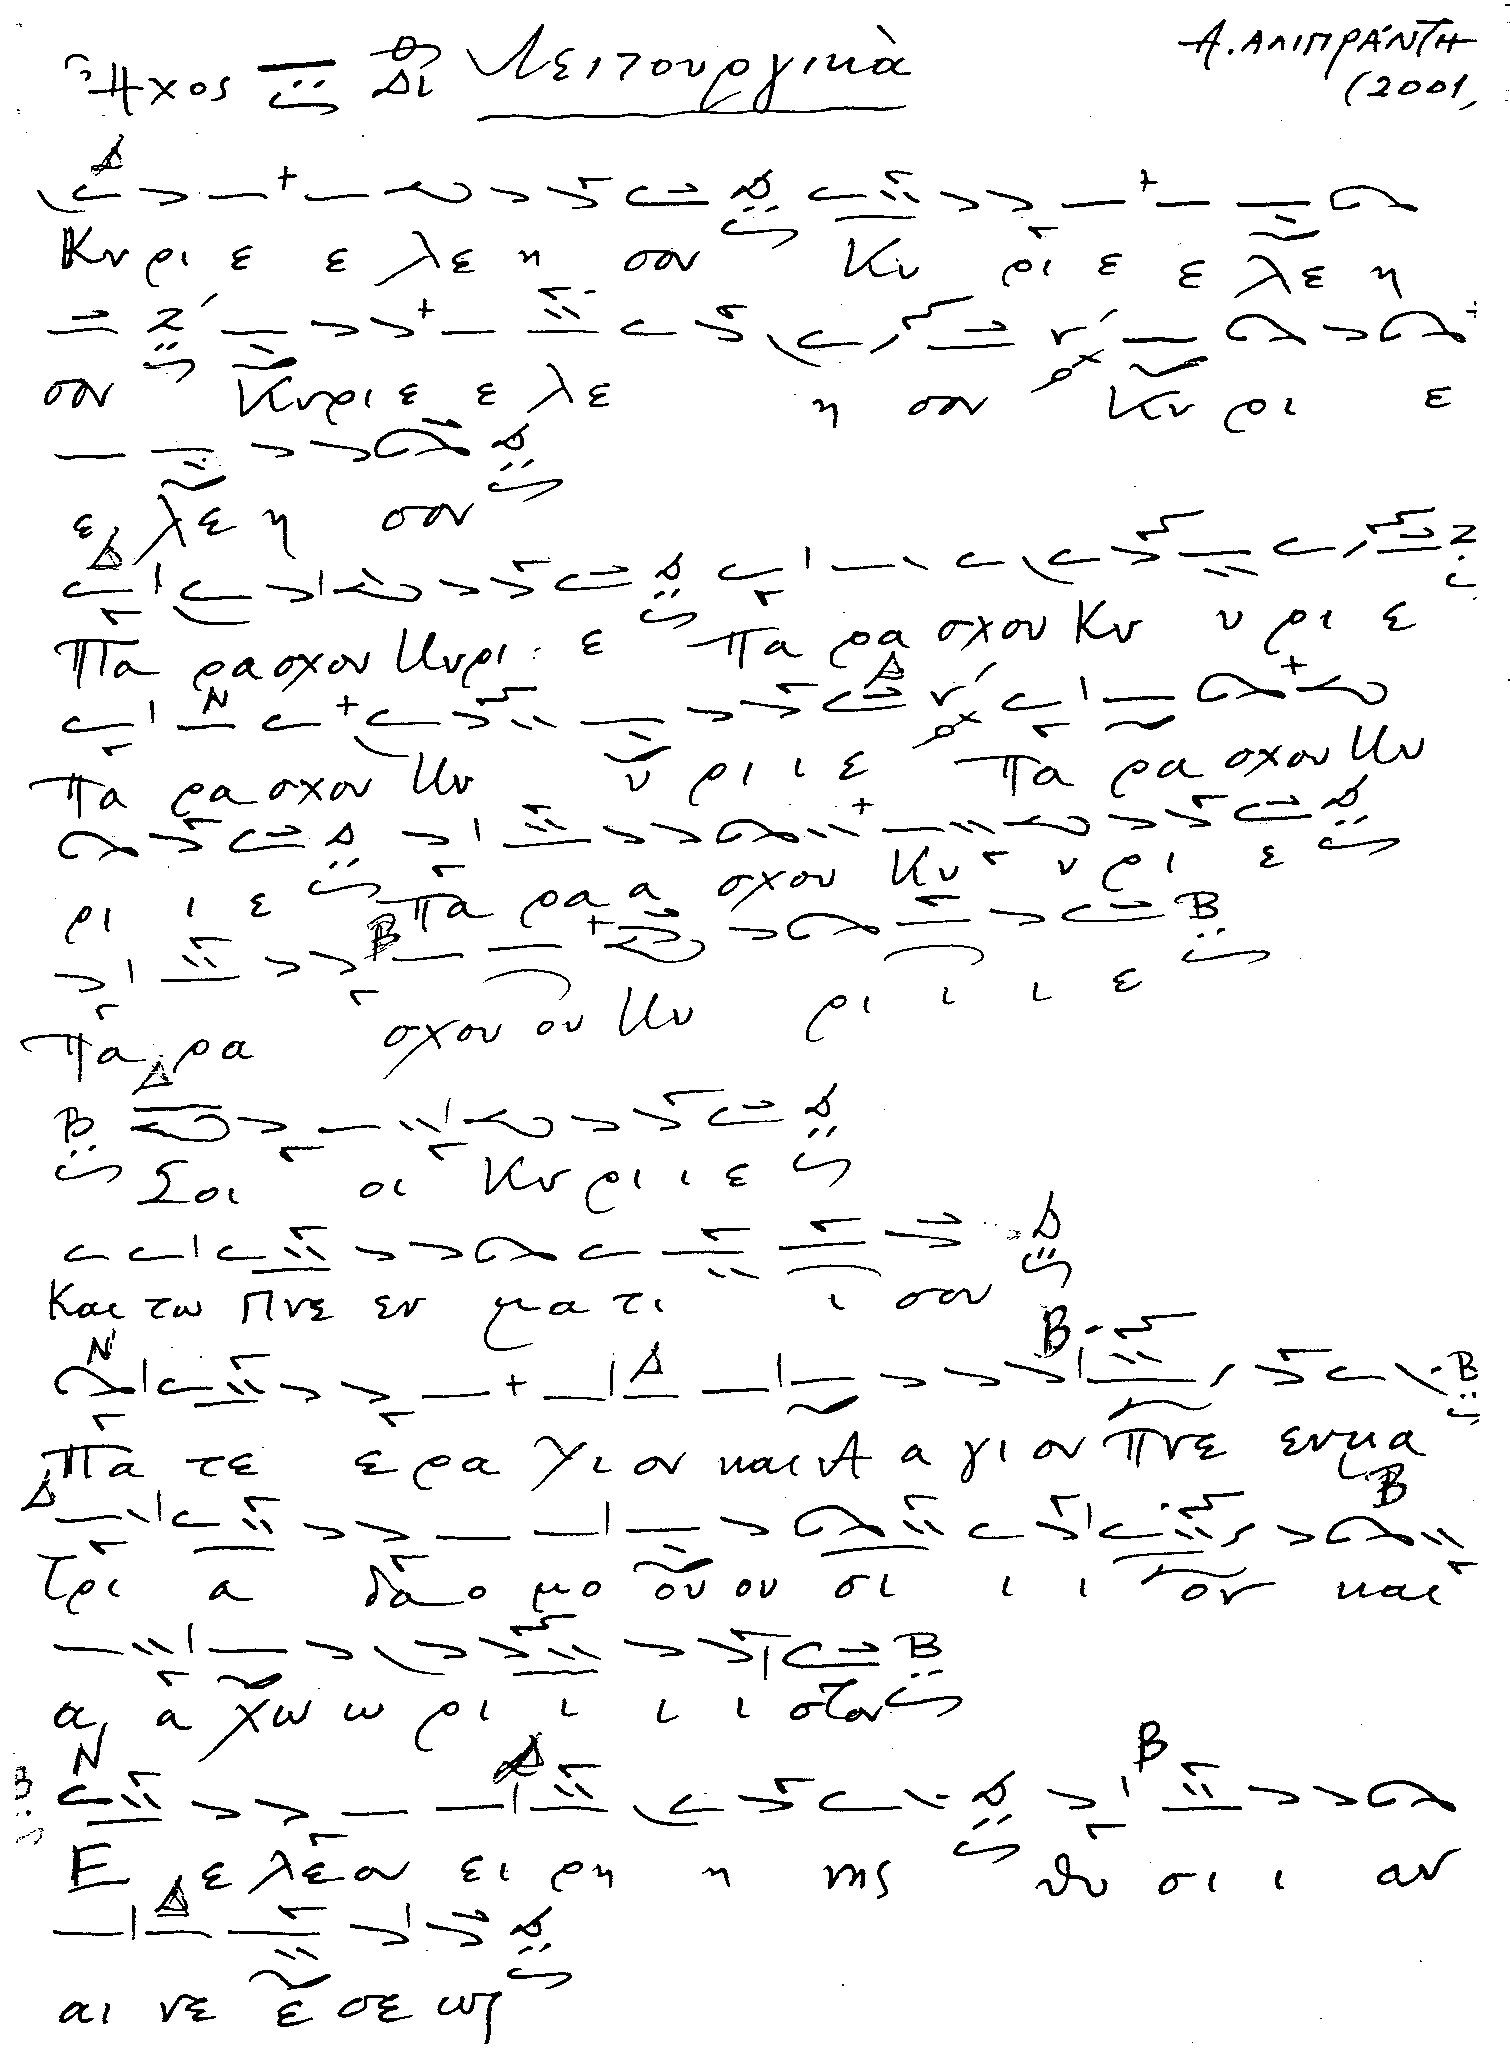 Ἦχος Δι Λειτουργικὰ
Α. ΑΛΙΠΡΑΝΤΗ
(2001,
Κυριε ε λε η σον Κυ ρι ε ε λε η
σον Κυριε ε λε η σον Κυ ρι ε
ε λε η σον
Πα ρασχου Κυρι ε Πα ρα σχου Κυ υ ρι ε
Πα ρα σχου Κυ υ ρι ι ε Πα ρα σχου Κυ
ρι ι ε Πα ρα α σχου Κυ υ ρι ε
Πα ρα σχου ου Κυ ρι ι ι ε
Σοι οι Κυ ρι ι ε
Και τω Πνε εν μα τι ι σου
Πα τε ε ρα Υι ον και Α α γι ον Πνε ευμα
Τρι α δα ο μο ου ου σι ι ι ον και
α α χω ω ρι ι ι ι στον
Ε ε λε ον ει ρη η νης θυ σι ι αν
αι νε ε σε ως